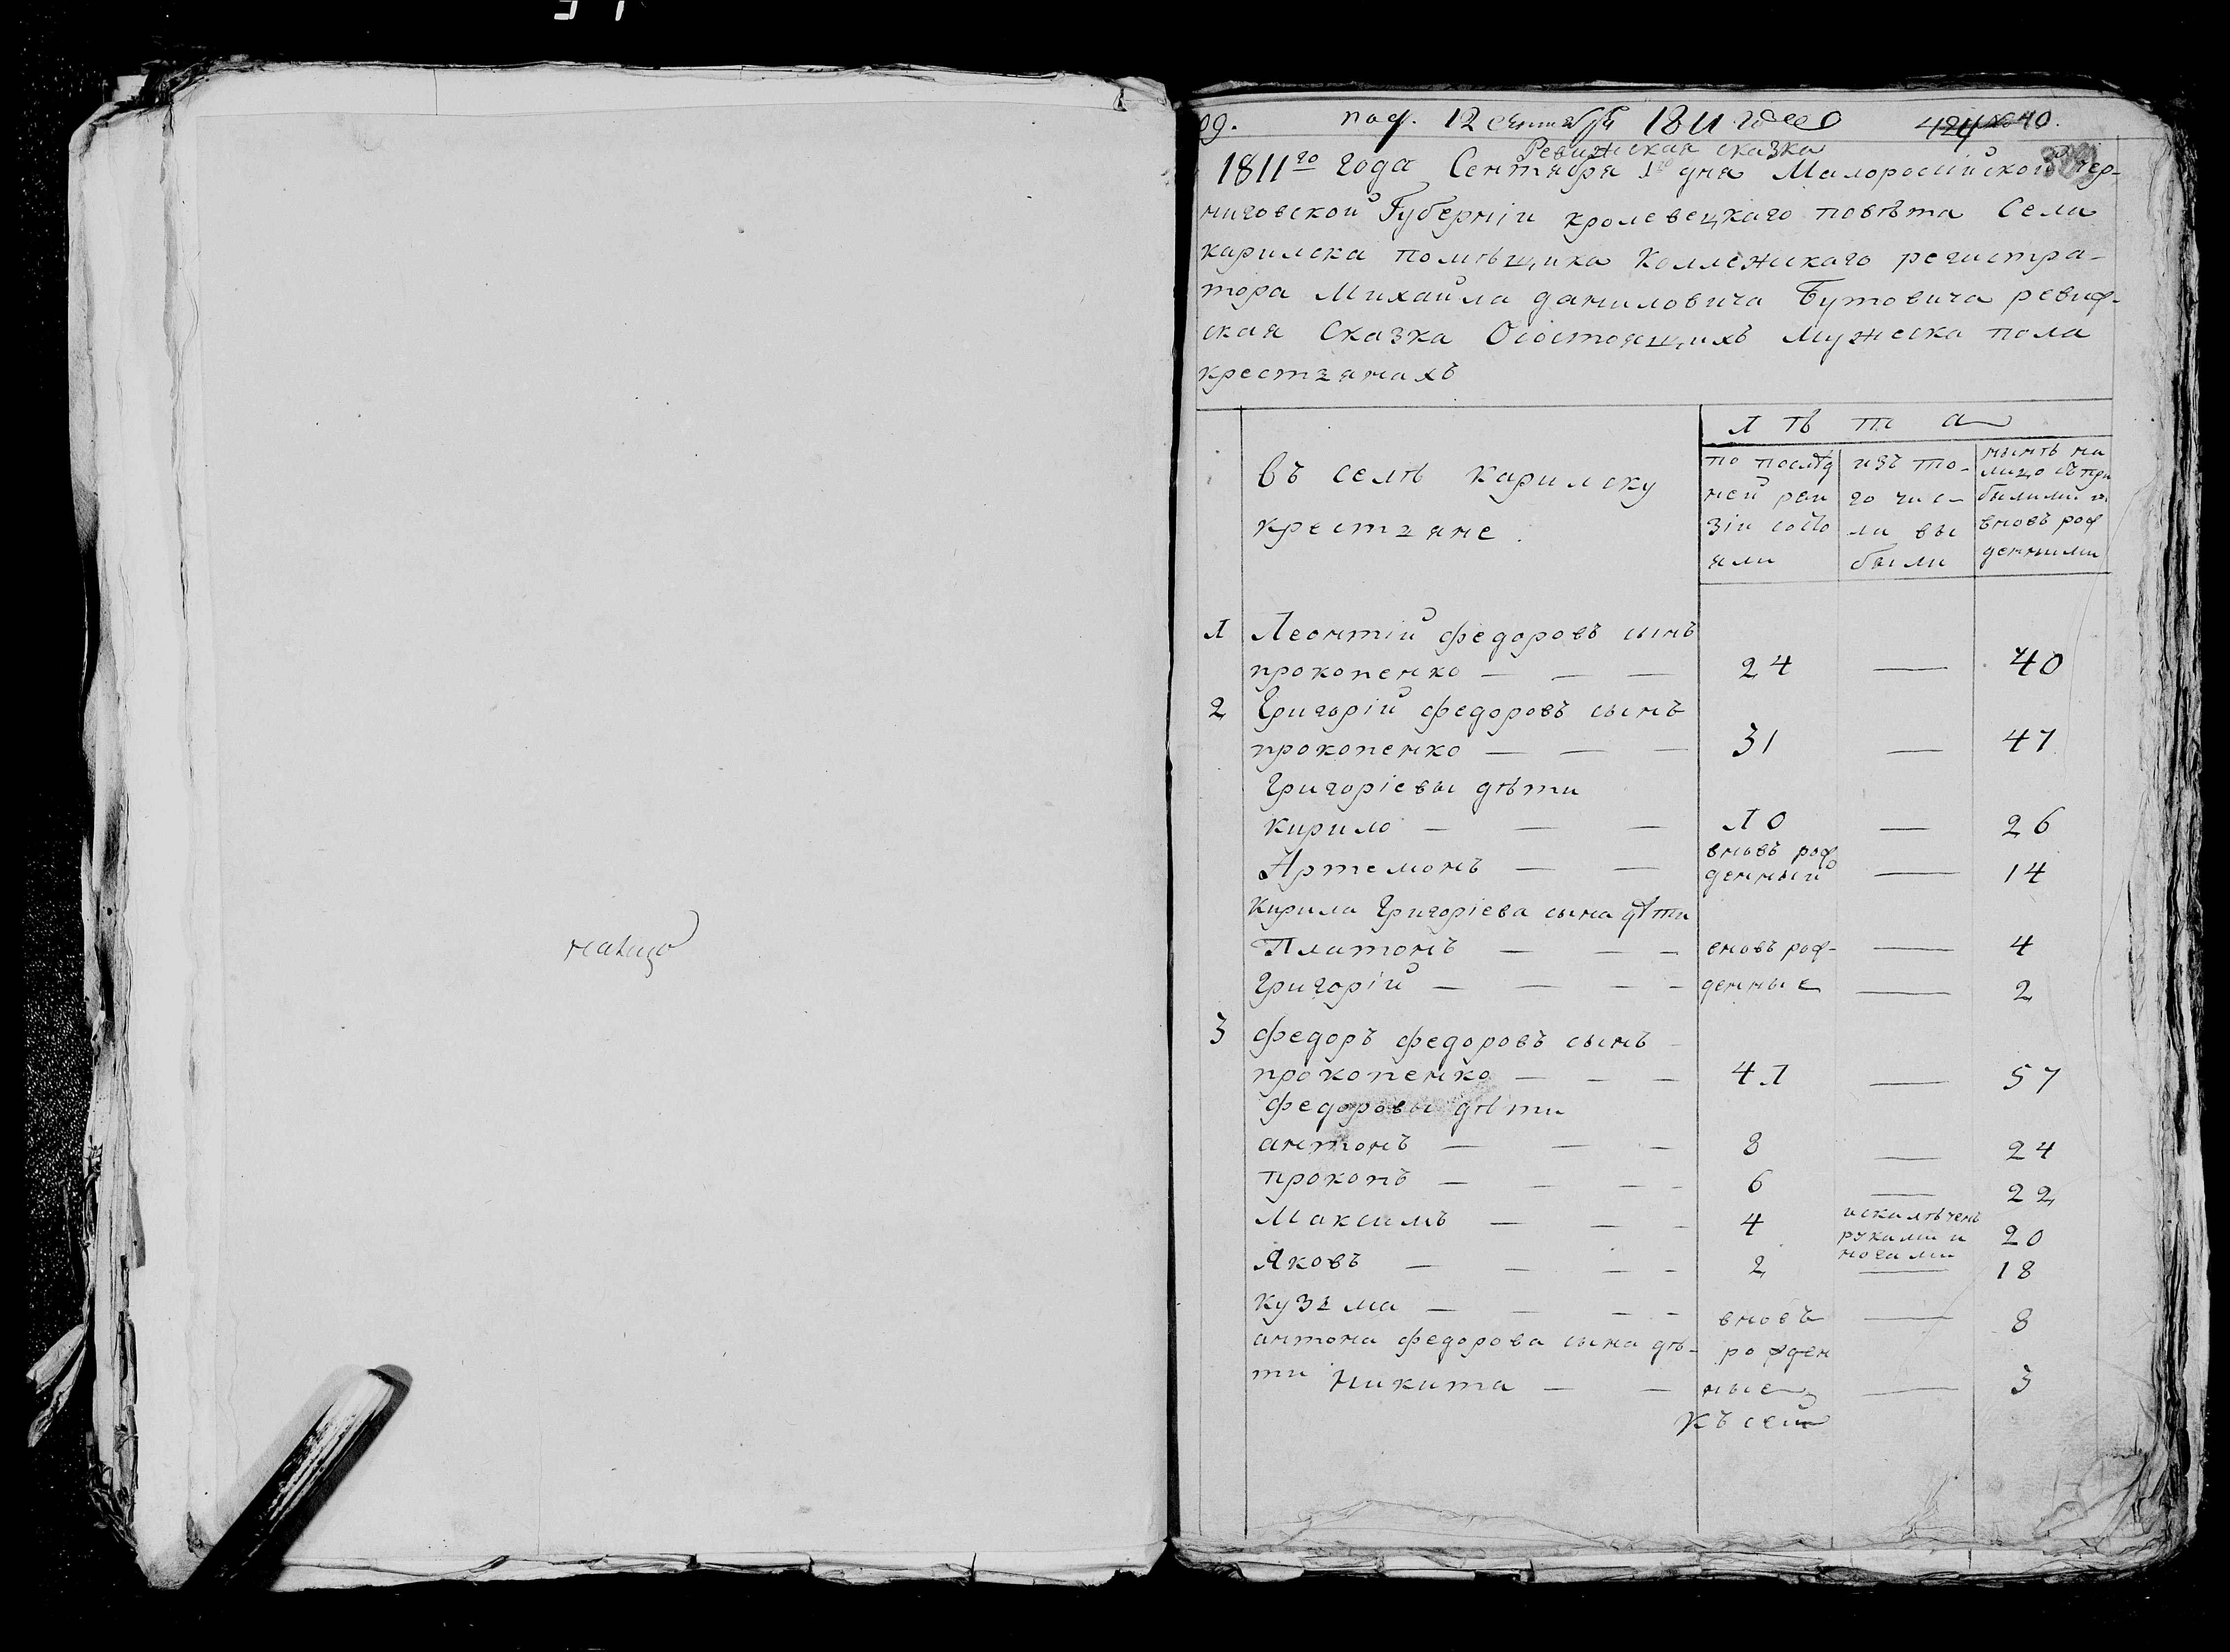 налицо
под. 12 сентября 1811 года
424 № 40.
Ревижская сказка
1811го года Сентября 1го дня Малоросiйской Чер-
ниговской Губернiи кролевецкаго повѣта Села
карилска помѣщика Коллежскаго регистра-
тора Михаила даниловича Бутовича ревиж-
ская Сказка Осостоящихъ мужеска пола
крестьянахъ
лѣта
въ селѣ карилску
крестьяне.
по послѣд
ней реви
зiи состо
яли
изъ то-
го чис-
ла вы
были
нынѣ на
лицо съ при
былыми и
вновь рож
денными
1 Леонтiй федоровъ сынъ
прокопенко — — — 24 — 40
2 Григорiй федоровъ сынъ
прокопенко — — — 31 — 47
Григорiевы дѣти
кирило — — — 10 — 26
Артемонъ — — вновь рож
денный — 14
Кирила Григорiева сына дѣти
Платонъ — — — вновь рож- — 4
Григорiй — — — — денные — 2
3 федоръ федоровъ сынъ -
прокопенко — — — 41 — 57
федоровы дѣти
антонъ — — — 8 — 24
прокопъ — — — — 6 — 22
Максимъ — — — 4 искалѣченъ
руками и
ногами 20
Яковъ — — — — 2 — 18
кузьма — — — — вновь — 8
антона федорова сына дѣ- рожден
ти Никита — — ные — 3
Къ сей